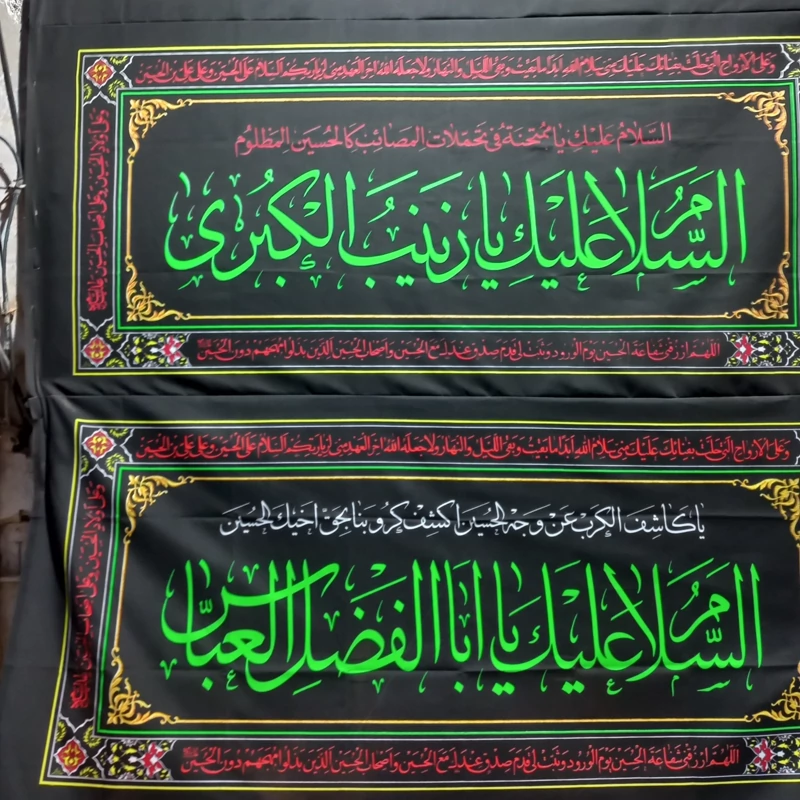 وعلى الارواح التي حلت بفنائك عليك مني سلام الله ابدا ما بقيت وبقي الليل والنهار ولا جعله الله اخر العهد مني لزيارتكم السلام على الحسين وعلى علي بن الحسين
وعلى اولاد الحسين وعلى اصحاب الحسين
السلام عليكِ يا ممتحنة في تحملات المصائب كالحسين المظلوم
السلام عليكِ يا زينب الكبرى
اللهم ارزقني شفاعة الحسين يوم الورود وثبت لي قدم صدق عندك مع الحسين واصحاب الحسين الذين بذلوا مهجهم دون الحسين
وعلى الارواح التي حلت بفنائك عليك مني سلام الله ابدا ما بقيت وبقي الليل والنهار ولا جعله الله اخر العهد مني لزيارتكم السلام على الحسين وعلى علي بن الحسين
وعلى اولاد الحسين وعلى اصحاب الحسين
يا كاشف الكرب عن وجه الحسين اكشف كروبنا بحق اخيك الحسين
السلام عليك يا ابا الفضل العباس
اللهم ارزقني شفاعة الحسين يوم الورود وثبت لي قدم صدق عندك مع الحسين واصحاب الحسين الذين بذلوا مهجهم دون الحسين